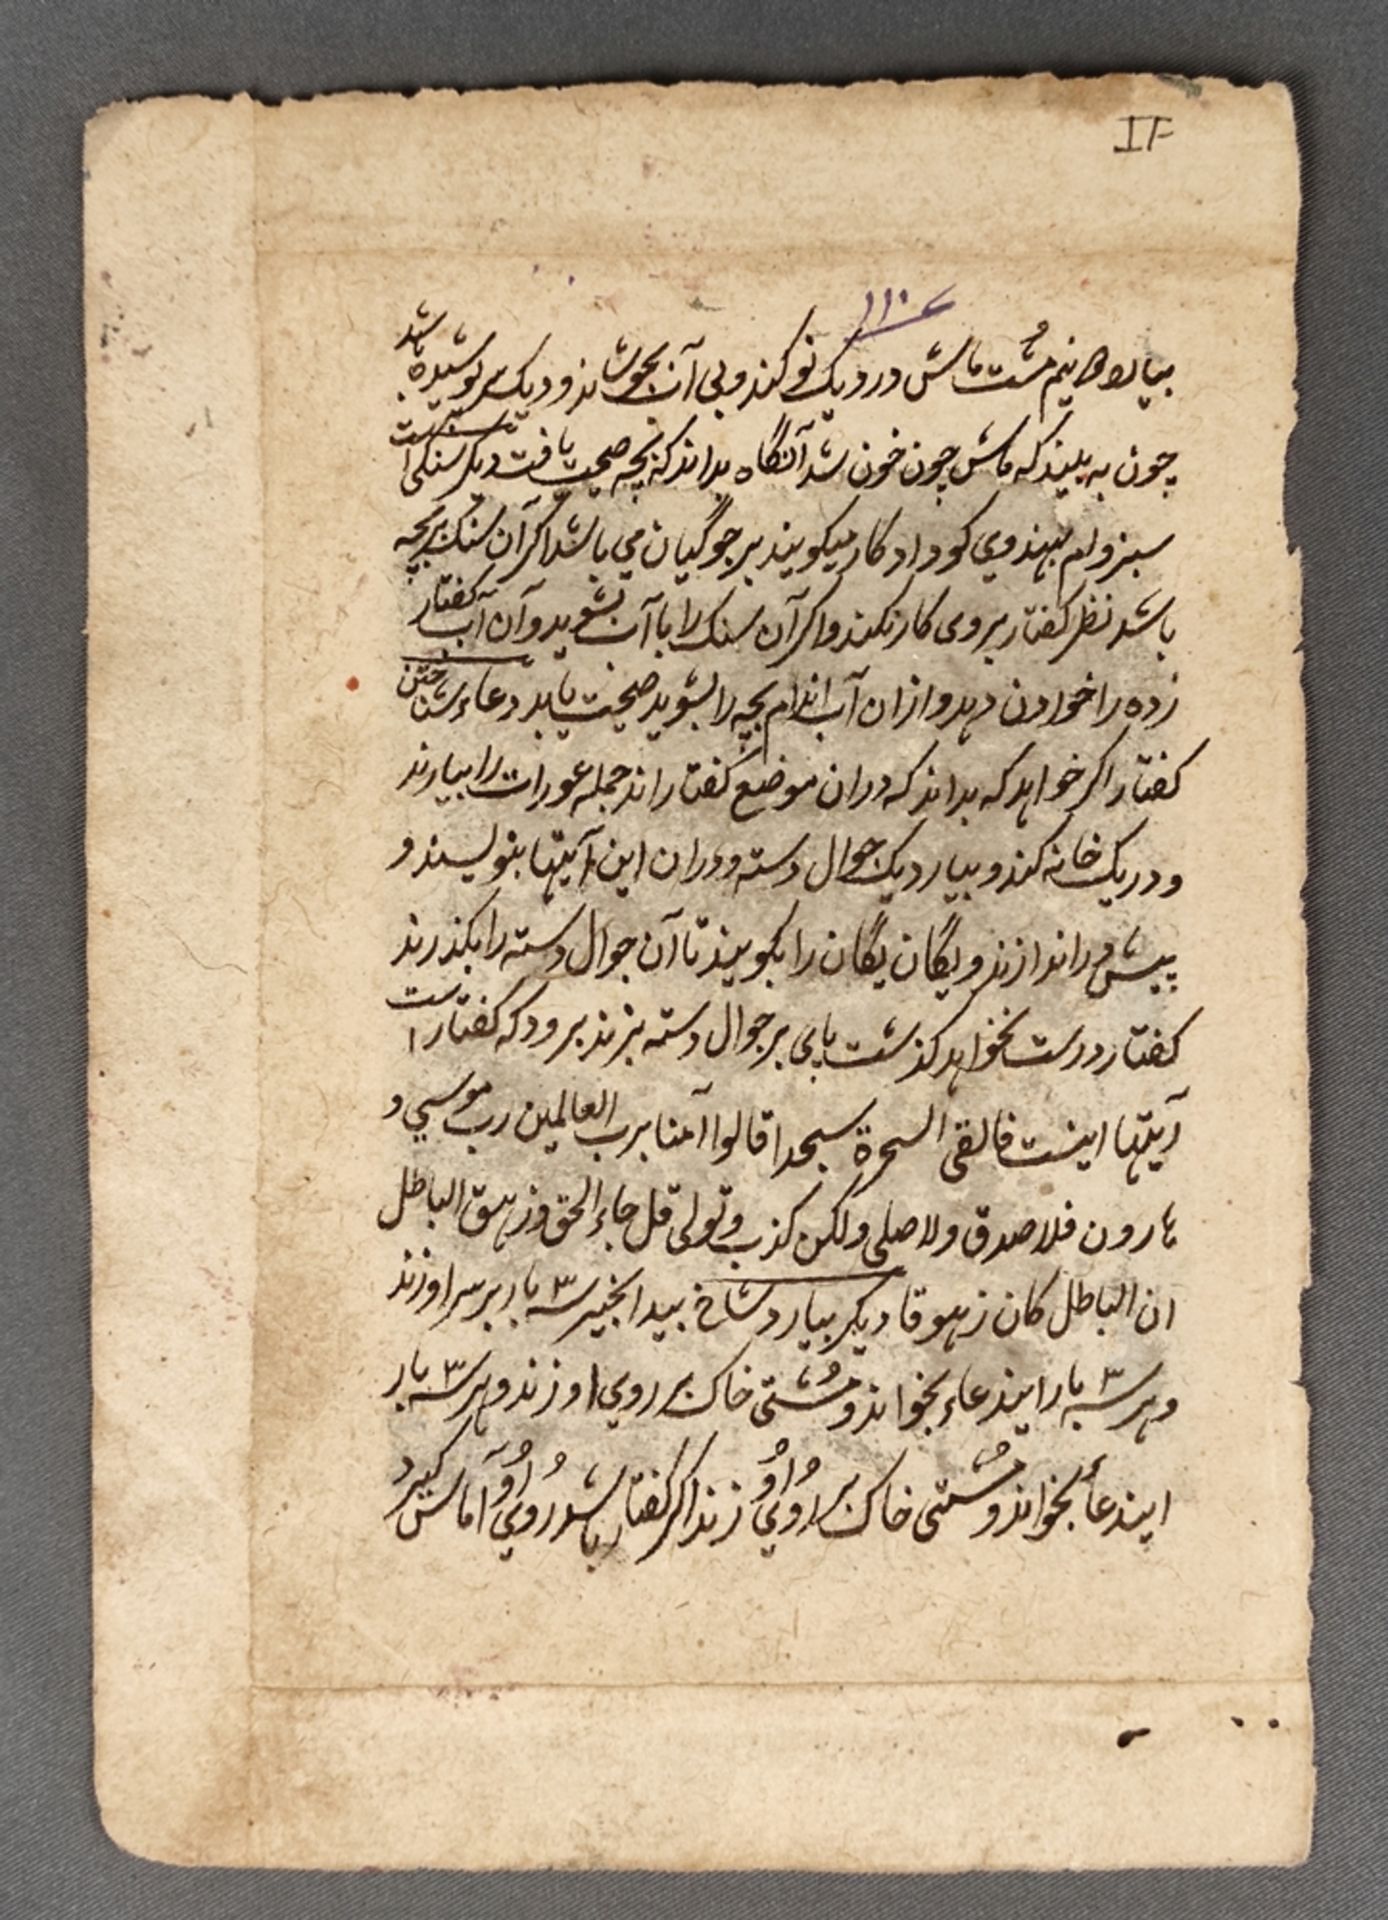 IF
۱۱۰
بیارد نیم مشت ماش در دیک نو کند و بی آن بجوشاند و دیک سر پوشیده باشد
چون به بیند که ماش چون خون شد آنگاه بداند که بچه صحت یافت دیکر سنکی است
سبز و ام بهندوی کوداد کار میکویند بر جوگیان می باشد اکر آن سنک بر بچه
باشد نظر کفتار بروی کار نکند و اکر آن سنک را با آب بشوید و آن آب کفتار
زده را خوردن دهد و ازان آب اندام بچه را بشوید صحت یابد دعاء شناختن
کفتار اکر خواهد که بداند که دران موضع کفتاراند جمله عورات را بیارند
و در یک خانه کند و بیارد یک جوال دسته و دران این آیتها بنویسند و
پیش در اندازند و یگان یگان را بکویند تا آن جوال دسته را بکذرند
کفتار درست نخواهد کذشت پای بر جوال دسته بزند برود که کفتار است
آیتها اینست فالقی السحرة سجدا قالوا آمنا برب العالمین رب موسی و
هارون فلا صدق ولا صلی ولکن کذب و تولی قل جاء الحق وزهق الباطل
ان الباطل کان زهوقا دیکر بیارد شاخ بید انجیر سه ۳ بار بر سر او زند
و هر سه ۳ بار ایندعاء بخواند و مشتی خاک بر روی او زند و هر سه ۳ بار
ایندعا بخواند و مشتی خاک بر روی او زند اکر کفتار باشد روی او آماس کیرد